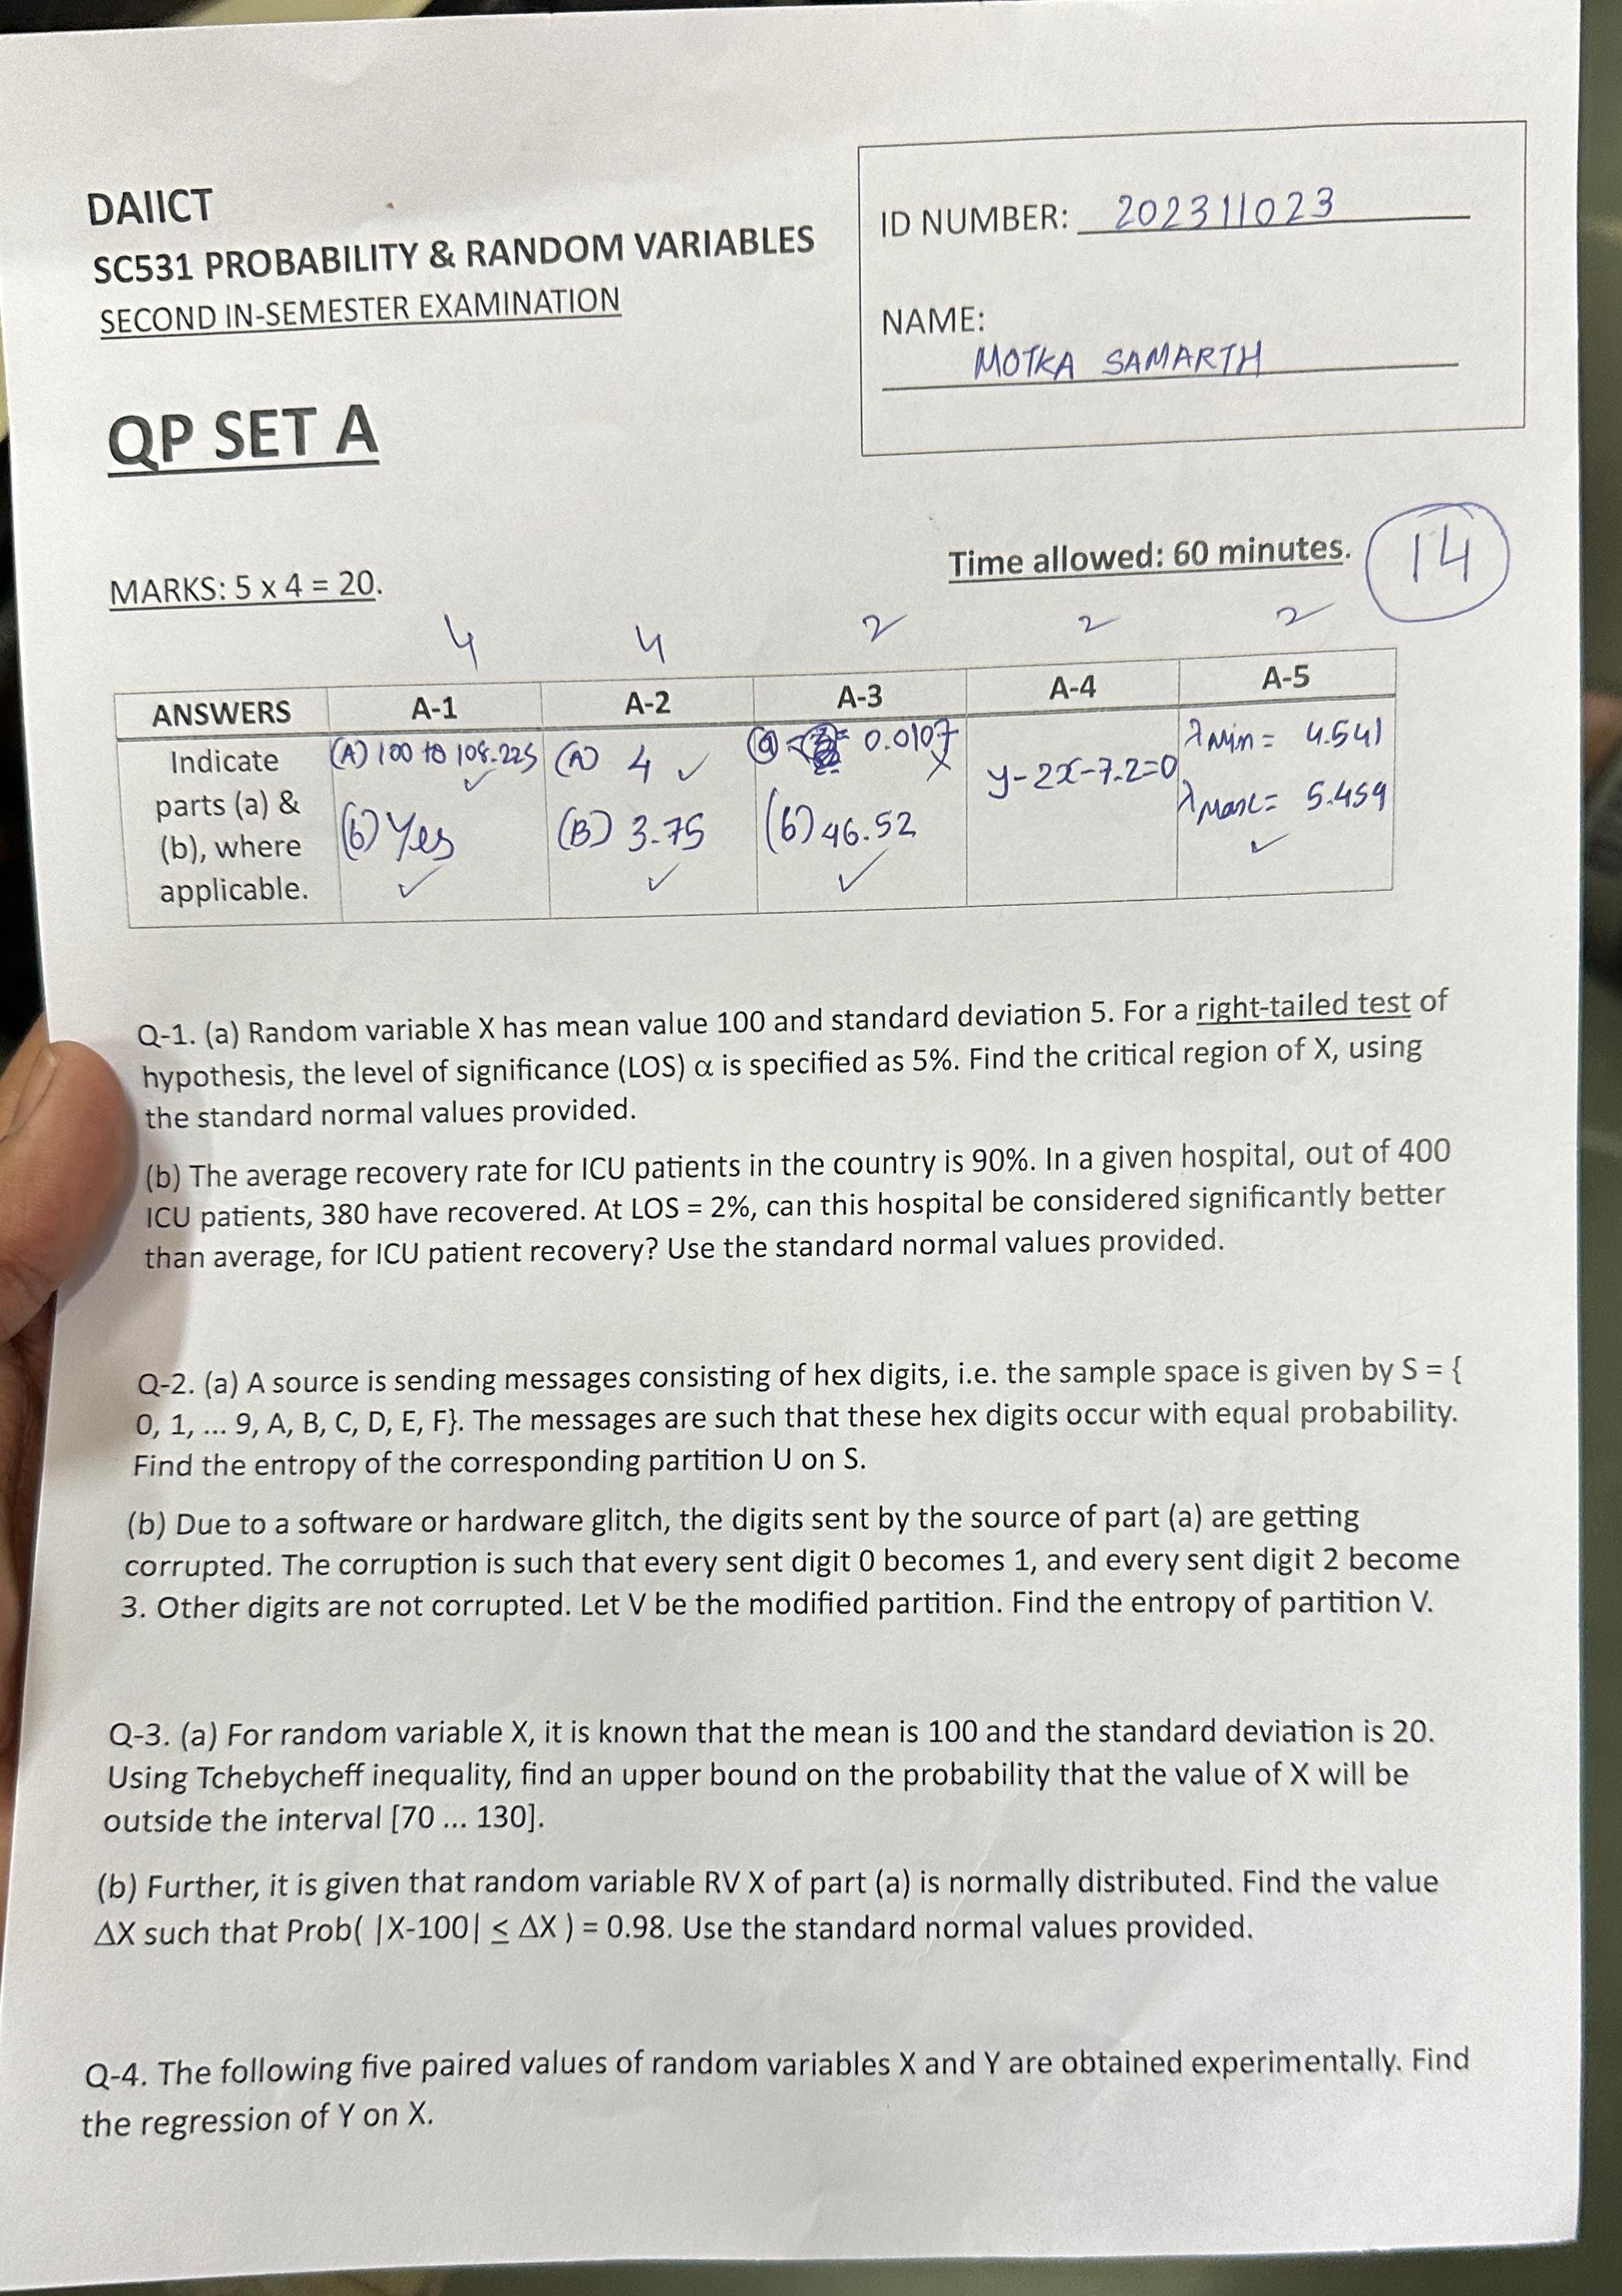 DAIICT
SC531 PROBABILITY & RANDOM VARIABLES
SECOND IN-SEMESTER EXAMINATION
QP SET A
ID NUMBER: 202311023
NAME:
MOTKA SAMARTH
Time allowed: 60 minutes.
14
MARKS: 5 x 4 = 20.
4 4 2 2 2
ANSWERS A-1 A-2 A-3 A-4 A-5
Indicate parts (a) & (b), where applicable.
(A) 100 to 108.225 ✓
(b) Yes ✓
(A) 4 ✓
(B) 3.75 ✓
(a) 0.0107 X
(b) 46.52 ✓
y-2x-7.2=0
λMin = 4.541
λMax = 5.459
✓
Q-1. (a) Random variable X has mean value 100 and standard deviation 5. For a right-tailed test of
hypothesis, the level of significance (LOS) α is specified as 5%. Find the critical region of X, using
the standard normal values provided.
(b) The average recovery rate for ICU patients in the country is 90%. In a given hospital, out of 400
ICU patients, 380 have recovered. At LOS = 2%, can this hospital be considered significantly better
than average, for ICU patient recovery? Use the standard normal values provided.
Q-2. (a) A source is sending messages consisting of hex digits, i.e. the sample space is given by S = {
0, 1, ... 9, A, B, C, D, E, F}. The messages are such that these hex digits occur with equal probability.
Find the entropy of the corresponding partition U on S.
(b) Due to a software or hardware glitch, the digits sent by the source of part (a) are getting
corrupted. The corruption is such that every sent digit 0 becomes 1, and every sent digit 2 become
3. Other digits are not corrupted. Let V be the modified partition. Find the entropy of partition V.
Q-3. (a) For random variable X, it is known that the mean is 100 and the standard deviation is 20.
Using Tchebycheff inequality, find an upper bound on the probability that the value of X will be
outside the interval [70 ... 130].
(b) Further, it is given that random variable RV X of part (a) is normally distributed. Find the value
ΔX such that Prob( |X-100| ≤ ΔX ) = 0.98. Use the standard normal values provided.
Q-4. The following five paired values of random variables X and Y are obtained experimentally. Find
the regression of Y on X.